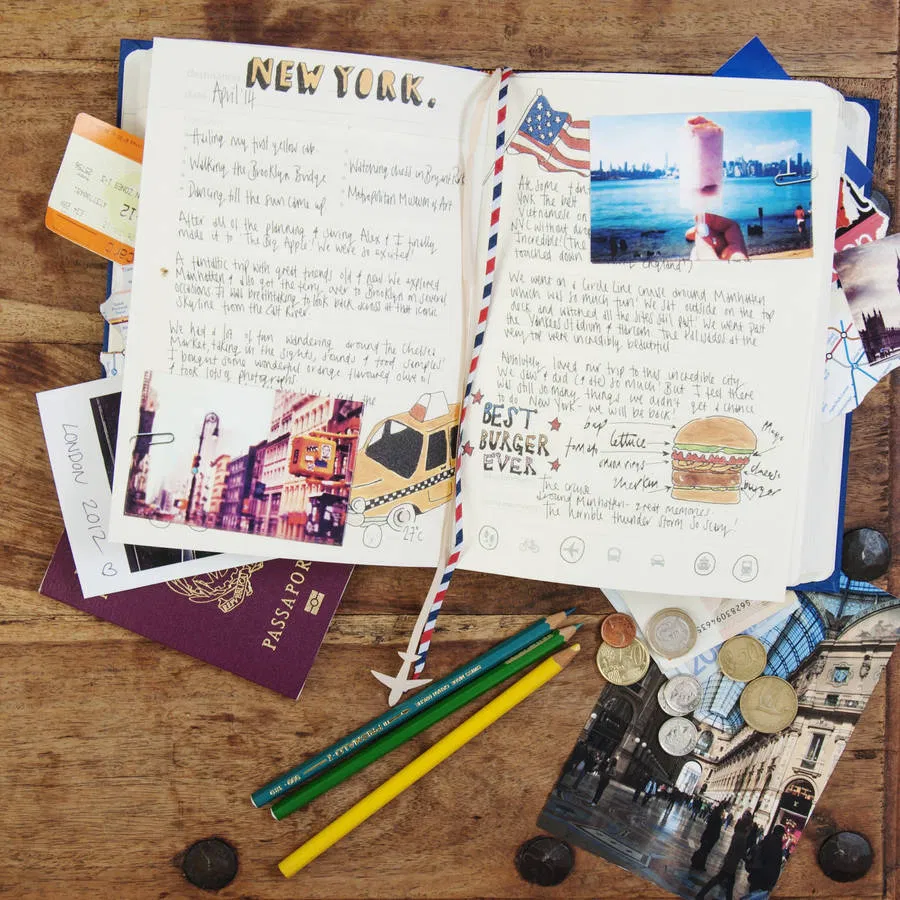 NEW YORK.
destination
date April '14
Hailing my first yellow cab
Walking the Brooklyn Bridge
Dancing till the sun came up
Watching chess in Bryant Park
Metropolitan Museum of Art
After all of the planning & saving Alex & I finally
made it to 'The Big Apple'! We were so excited!
A fantastic trip with great friends old & new. We explored
Manhattan & also got the ferry over to Brooklyn on several
occasions. It was breathtaking to look back across at that iconic
skyline from the East River.
We had a lot of fun wandering around the Chelsea
Market, taking in the sights, sounds & food samples!
I bought some wonderful orange flavoured olive oil
& took lots of photographs
and the
27°C
At some
York. The best
Vietnamese
NYC without
Incredible! (The
touched down England")
We went on a Circle Line cruise around Manhattan
which was so much fun! We sat outside on the top
deck and watched all the sites sail past! We went past
the Yankees Stadium & Harlem. The Palisades at the
very top were incredibly beautiful
Absolutely loved our trip to this incredible city.
We saw & did (& ate) so much! But I feel there
was still so many things we didn't get a chance
to do. New York - we will be back!
BEST
BURGER
EVER
bap
Lettuce
tomato
onion rings
Gherkin
Mayo
cheese
burger
The cruise
around Manhattan - great memories.
The horrible thunder storm so scary!
LONDON 2012
PASSAPORT